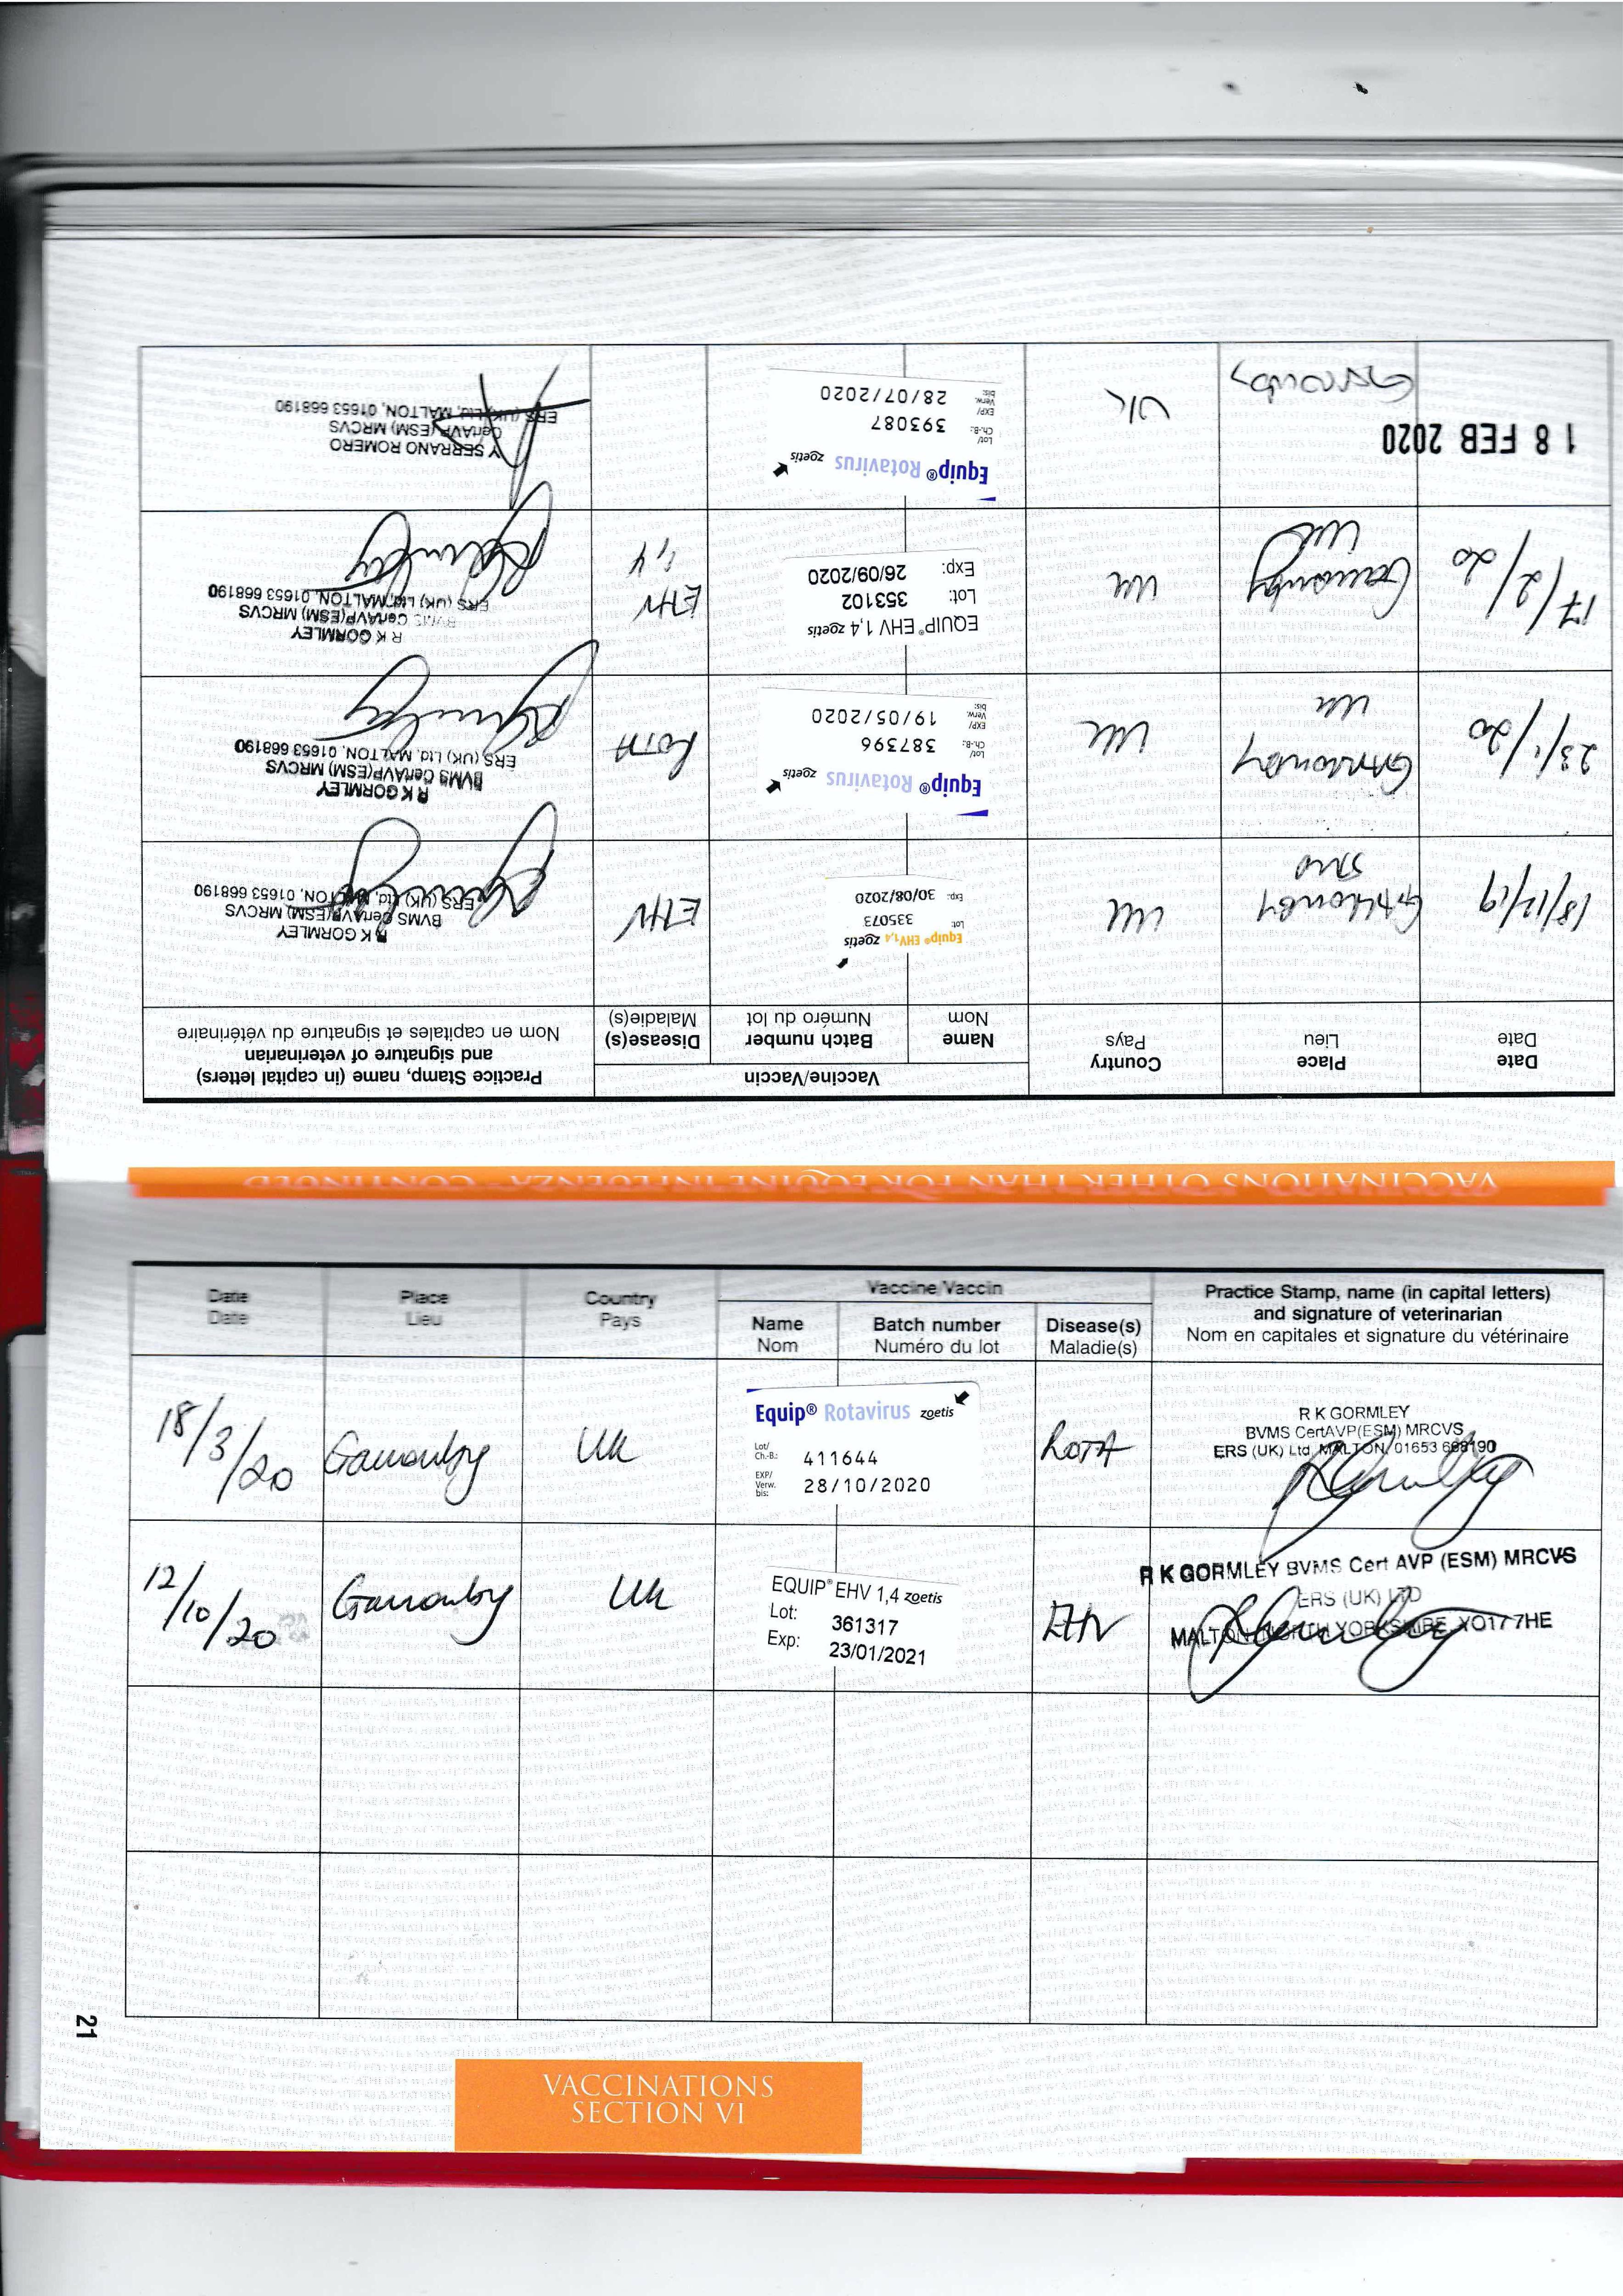 VACCINATIONS OTHER THAN FOR EQUINE INFLUENZA - CONTINUED
Date
Date
Place
Lieu
Country
Pays
Vaccine/Vaccin
Name
Nom
Batch number
Numéro du lot
Disease(s)
Maladie(s)
Practice Stamp, name (in capital letters)
and signature of veterinarian
Nom en capitales et signature du vétérinaire
18/12/19
Garrowby
Stud
Uk
Equip® EHV1,4 zoetis
Lot: 335073
Exp: 30/08/2020
EHV
R K GORMLEY
BVMS CertAVP(ESM) MRCVS
ERS (UK) Ltd, MALTON, 01653 668190
23/1/20
Garrowby
Uk
Uk
Equip® Rotavirus zoetis
Lot/ Ch.-B.: 387396
EXP/ Verw. bis: 19/05/2020
ROTA
R K GORMLEY
BVMS CertAVP(ESM) MRCVS
ERS (UK) Ltd, MALTON, 01653 668190
17/2/20
Garrowby
Uk
Uk
EQUIP® EHV 1,4 zoetis
Lot: 353102
Exp: 26/09/2020
EHV
1,4
R K GORMLEY
BVMS CertAVP(ESM) MRCVS
ERS (UK) Ltd, MALTON, 01653 668190
18 FEB 2020
Garrowby
UK
Equip® Rotavirus zoetis
Lot/ Ch.-B.: 393087
EXP/ Verw. bis: 28/07/2020
Y SERRANO ROMERO
CertAVP (ESM) MRCVS
ERS (UK) Ltd, MALTON, 01653 668190
Date
Date
Place
Lieu
Country
Pays
Vaccine/Vaccin
Name
Nom
Batch number
Numéro du lot
Disease(s)
Maladie(s)
Practice Stamp, name (in capital letters)
and signature of veterinarian
Nom en capitales et signature du vétérinaire
18/3/20
Garrowby
Uk
Equip® Rotavirus zoetis
Lot/ Ch.-B.: 411644
EXP/ Verw. bis: 28/10/2020
ROTA
R K GORMLEY
BVMS CertAVP(ESM) MRCVS
ERS (UK) Ltd, MALTON, 01653 668190
12/10/20
Garrowby
Uk
EQUIP® EHV 1,4 zoetis
Lot: 361317
Exp: 23/01/2021
EHV
R K GORMLEY BVMS Cert AVP (ESM) MRCVS
ERS (UK) LTD
MALTON NORTH YORKSHIRE, YO17 7HE
21
VACCINATIONS
SECTION VI